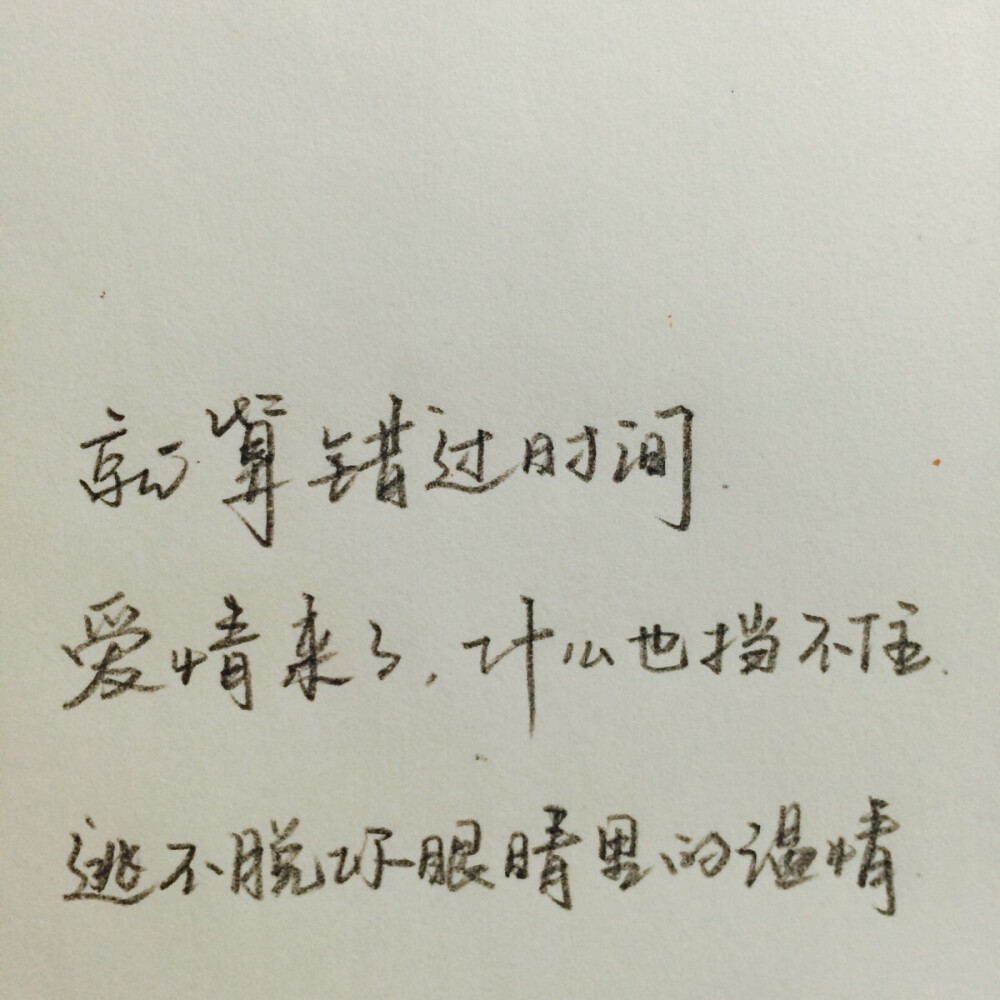 就算错过时间
爱情来了,什么也挡不住.
逃不脱你眼睛里的温情